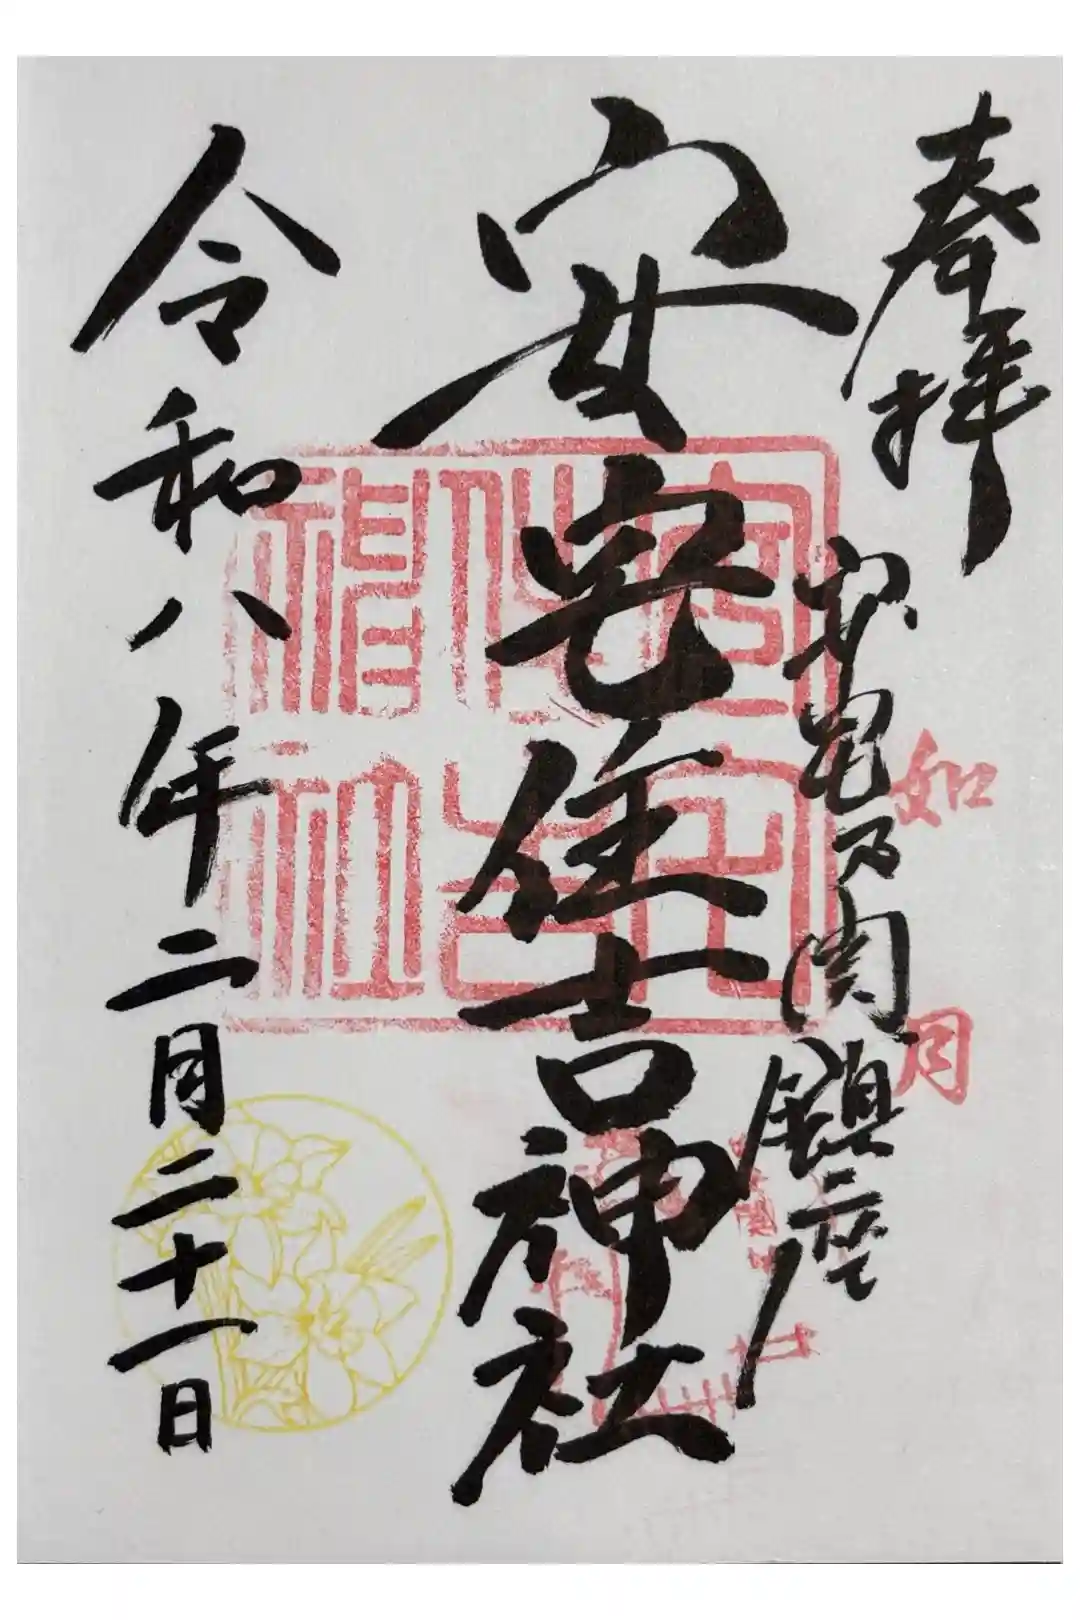 奉拝
安宅乃関鎮座
如月
安宅住吉神社
安宅
住吉
神社
令和八年二月二十一日